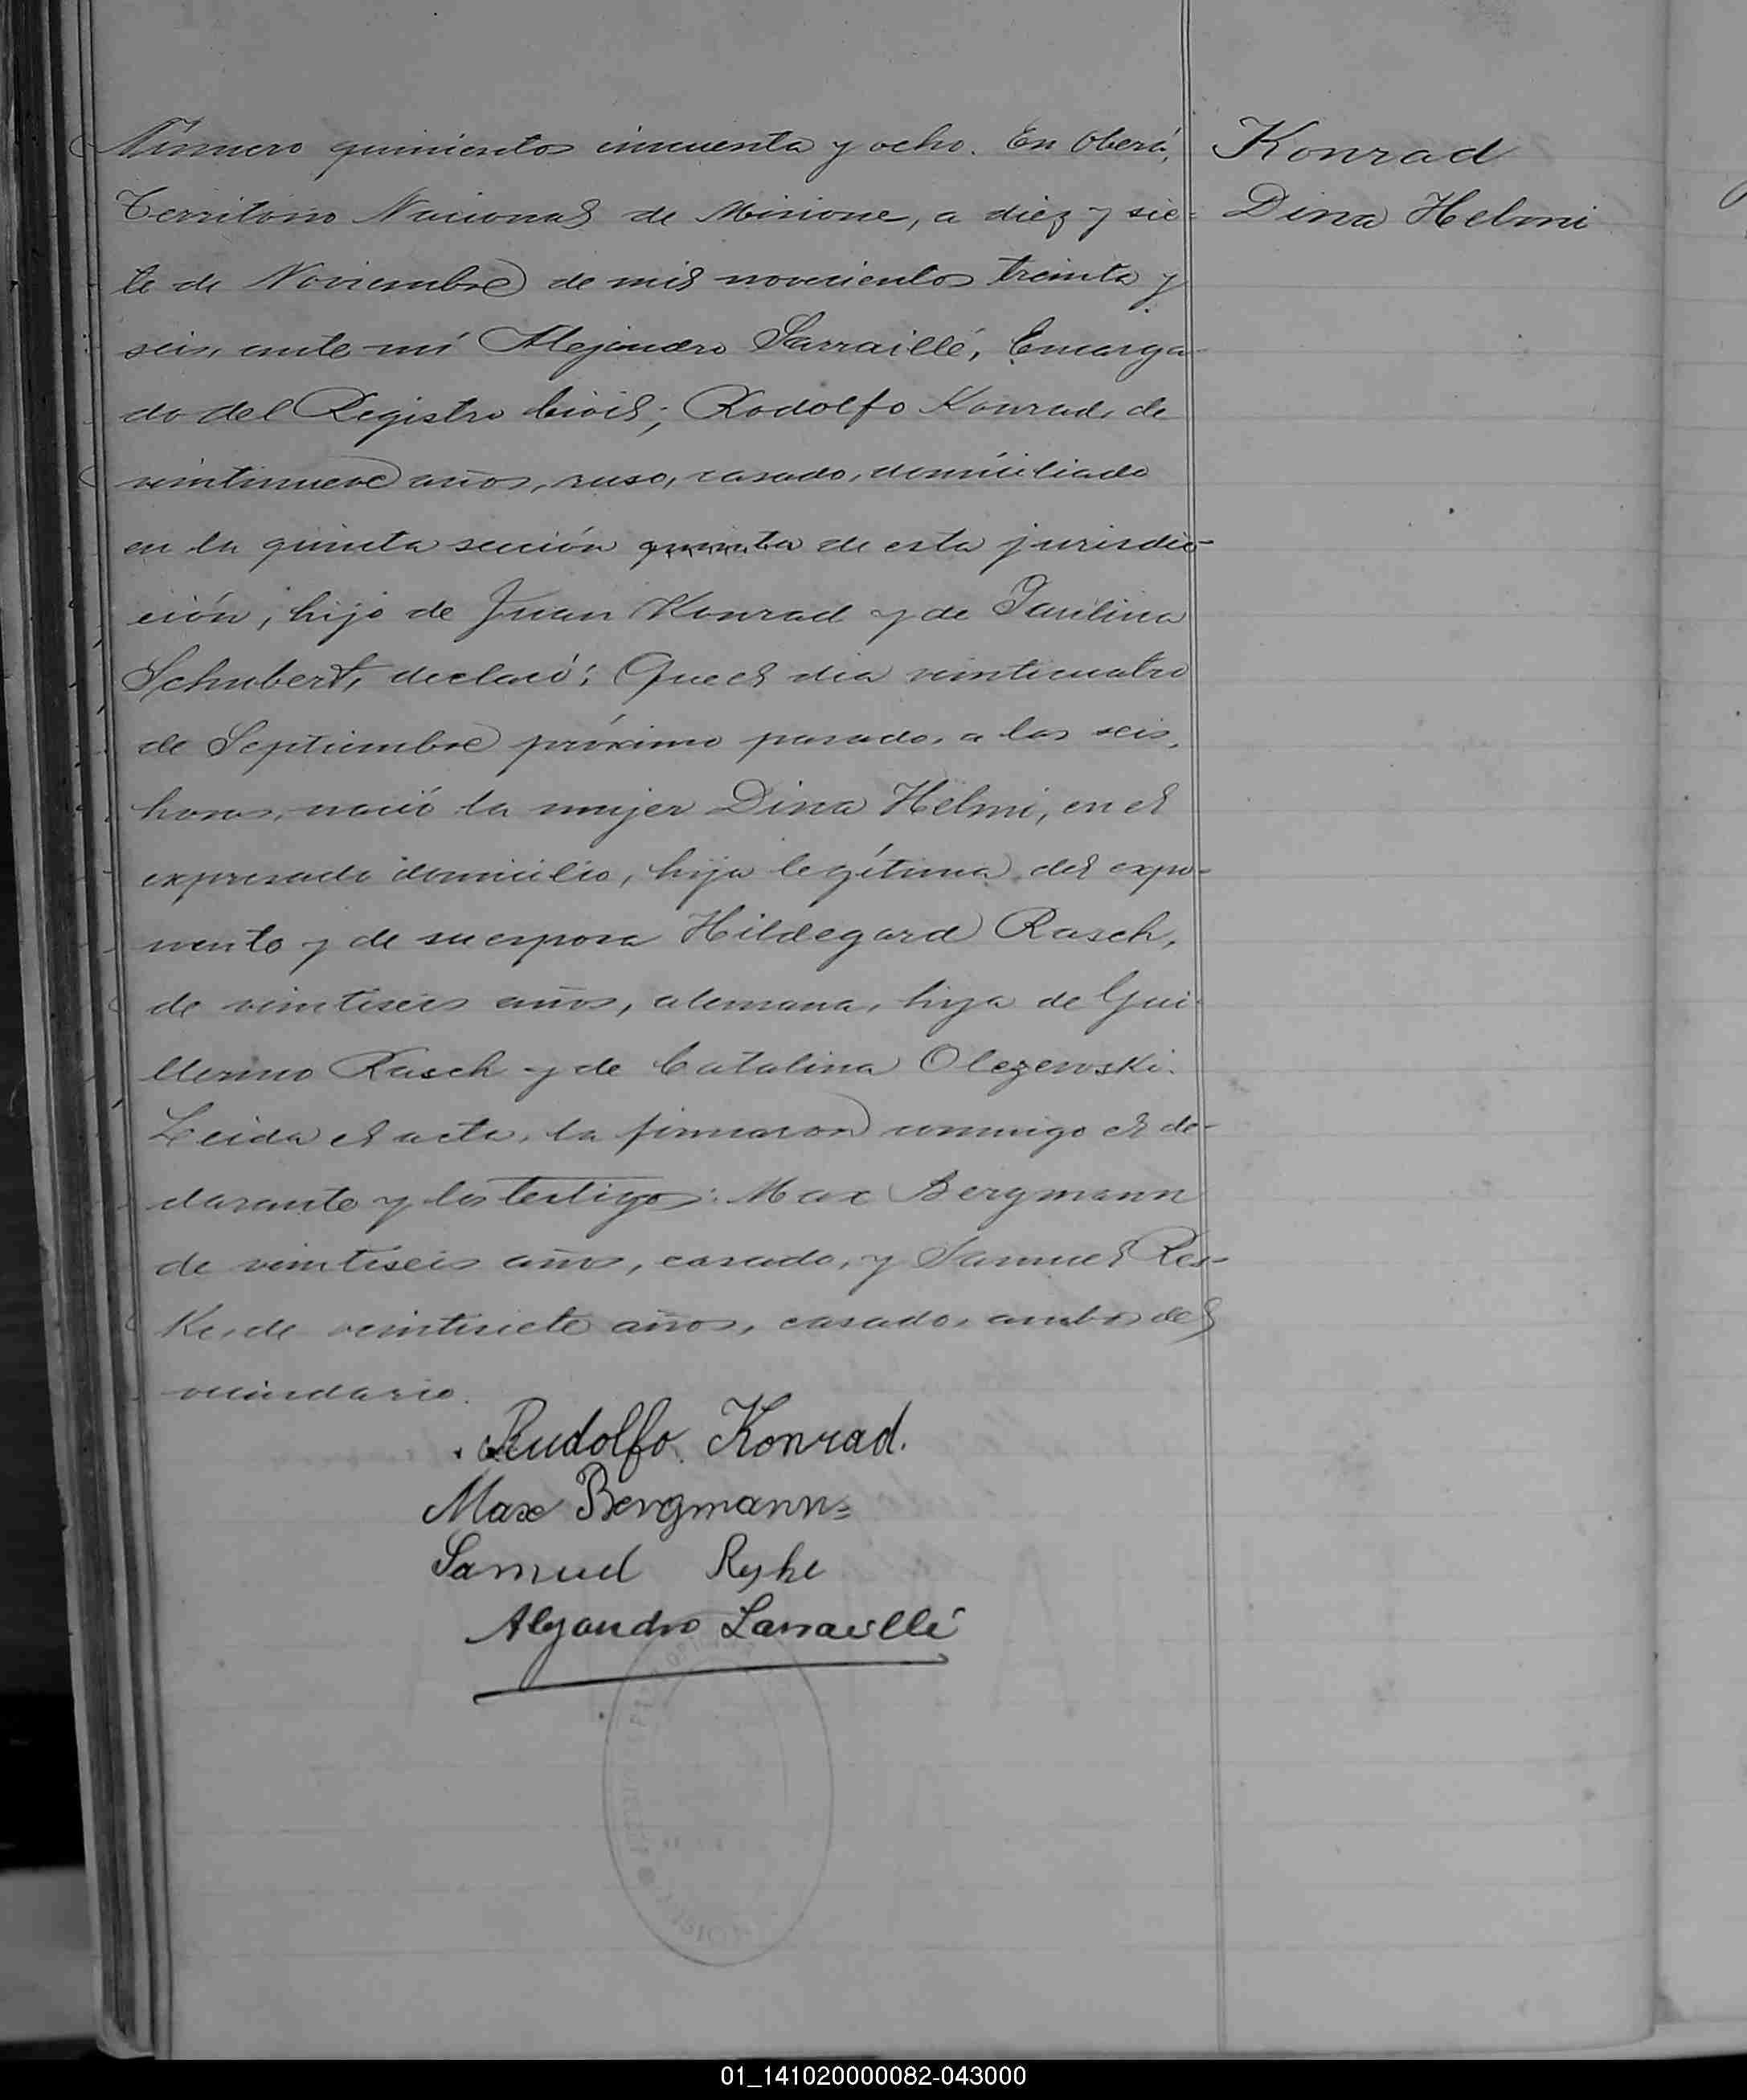 Número quinientos cincuenta y ocho. En Oberá,
Territorio Nacional de Misione, a diez y sie-
te de Noviembre de mil novecientos treinta y
seis, ante mí Alejandro Sarraillé, Encarga-
do del Registro Civil; Rodolfo Konrad, de
veintinueve años, ruso, casado, domiciliado
en la quinta sección quinta de esta jurisdic-
ción, hijo de Juan Konrad y de Paulina
Schubert, declaró: Que el día veinticuatro
de Septiembre próximo pasado, a las seis
horas, nació la mujer Dina Helmi, en el
expresado domicilio, hija legítima del expo-
nente y de su esposa Hildegard Rasch,
de veintiseis años, alemana, hija de Gui-
llermo Rasch y de Catalina Olezewski.
Leida el acta, la firmaron conmigo el de-
clarante y los testigos: Max Bergmann
de veintiseis años, casado, y Samuel Res-
ke, de veintisiete años, casado, ambos del
vecindario.
Konrad
Dina Helmi
Rudolfo Konrad.
Max Bergmann
Samuel Ryke
Alejandro Sarraillé
01_141020000082-043000